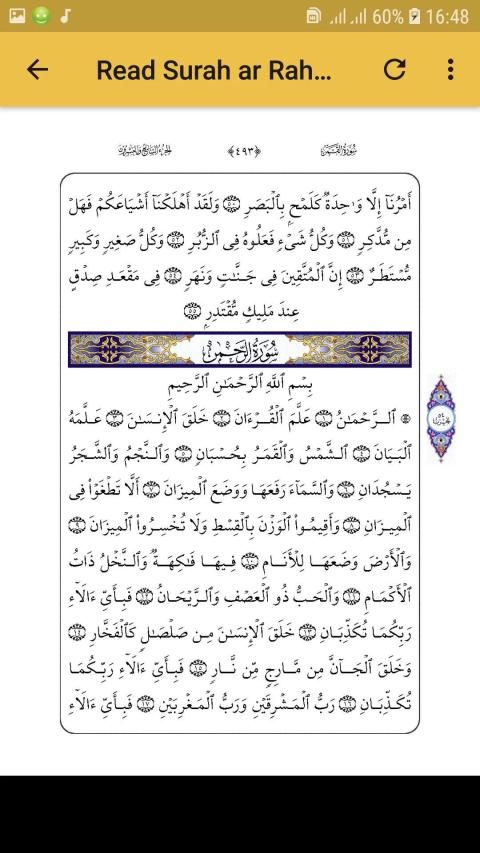 60% 16:48
Read Surah ar Rah...
سُورَةُ القَمَرِ ﴿٤٩٣﴾ الجُزْءُ السَّابِعُ وَالعِشْرُونَ
أَمْرُنَآ إِلَّا وَٰحِدَةٌ كَلَمْحٍۭ بِٱلْبَصَرِ ٥٠ وَلَقَدْ أَهْلَكْنَآ أَشْيَاعَكُمْ فَهَلْ
مِن مُّدَّكِرٍ ٥١ وَكُلُّ شَىْءٍ فَعَلُوهُ فِى ٱلزُّبُرِ ٥٢ وَكُلُّ صَغِيرٍ وَكَبِيرٍ
مُّسْتَطَرٌ ٥٣ إِنَّ ٱلْمُتَّقِينَ فِى جَنَّٰتٍ وَنَهَرٍ ٥٤ فِى مَقْعَدِ صِدْقٍ
عِندَ مَلِيكٍ مُّقْتَدِرٍۭ ٥٥
سُورَةُ الرَّحْمَٰن
بِسْمِ ٱللَّهِ ٱلرَّحْمَٰنِ ٱلرَّحِيمِ
ٱلرَّحْمَٰنُ ١ عَلَّمَ ٱلْقُرْءَانَ ٢ خَلَقَ ٱلْإِنسَٰنَ ٣ عَلَّمَهُ
ٱلْبَيَانَ ٤ ٱلشَّمْسُ وَٱلْقَمَرُ بِحُسْبَانٍ ٥ وَٱلنَّجْمُ وَٱلشَّجَرُ
يَسْجُدَانِ ٦ وَٱلسَّمَآءَ رَفَعَهَا وَوَضَعَ ٱلْمِيزَانَ ٧ أَلَّا تَطْغَوْا۟ فِى
ٱلْمِيزَانِ ٨ وَأَقِيمُوا۟ ٱلْوَزْنَ بِٱلْقِسْطِ وَلَا تُخْسِرُوا۟ ٱلْمِيزَانَ ٩
وَٱلْأَرْضَ وَضَعَهَا لِلْأَنَامِ ١٠ فِيهَا فَٰكِهَةٌ وَٱلنَّخْلُ ذَاتُ
ٱلْأَكْمَامِ ١١ وَٱلْحَبُّ ذُو ٱلْعَصْفِ وَٱلرَّيْحَانُ ١٢ فَبِأَىِّ ءَالَآءِ
رَبِّكُمَا تُكَذِّبَانِ ١٣ خَلَقَ ٱلْإِنسَٰنَ مِن صَلْصَٰلٍ كَٱلْفَخَّارِ ١٤
وَخَلَقَ ٱلْجَآنَّ مِن مَّارِجٍ مِّن نَّارٍ ١٥ فَبِأَىِّ ءَالَآءِ رَبِّكُمَا
تُكَذِّبَانِ ١٦ رَبُّ ٱلْمَشْرِقَيْنِ وَرَبُّ ٱلْمَغْرِبَيْنِ ١٧ فَبِأَىِّ ءَالَآءِ